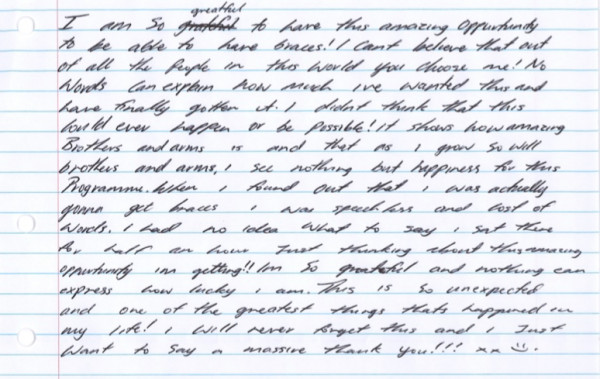 greatful
I am so grateful to have this amazing oppurtunity
to be able to have braces! I cant believe that out
of all the people in this world you choose me! No
words can explain how much ive wanted this and
have finally gotten it. I didnt think that this
could ever happen or be possible! it shows how amazing
Brothers and arms is and that as i grow so will
brothers and arms, i see nothing but happiness for this
Programme. When i found out that i was actually
gonna get braces i was speechless and lost of
words. i had no idea what to say i sat there
for half an hour Just thinking about this amazing
oppurtunity im getting!! Im so greatful and nothing can
express how lucky i am. This is so unexpected
and one of the greatest things thats happened in
my life! i will never forget this and i Just
want to say a massive thank you!!! xx